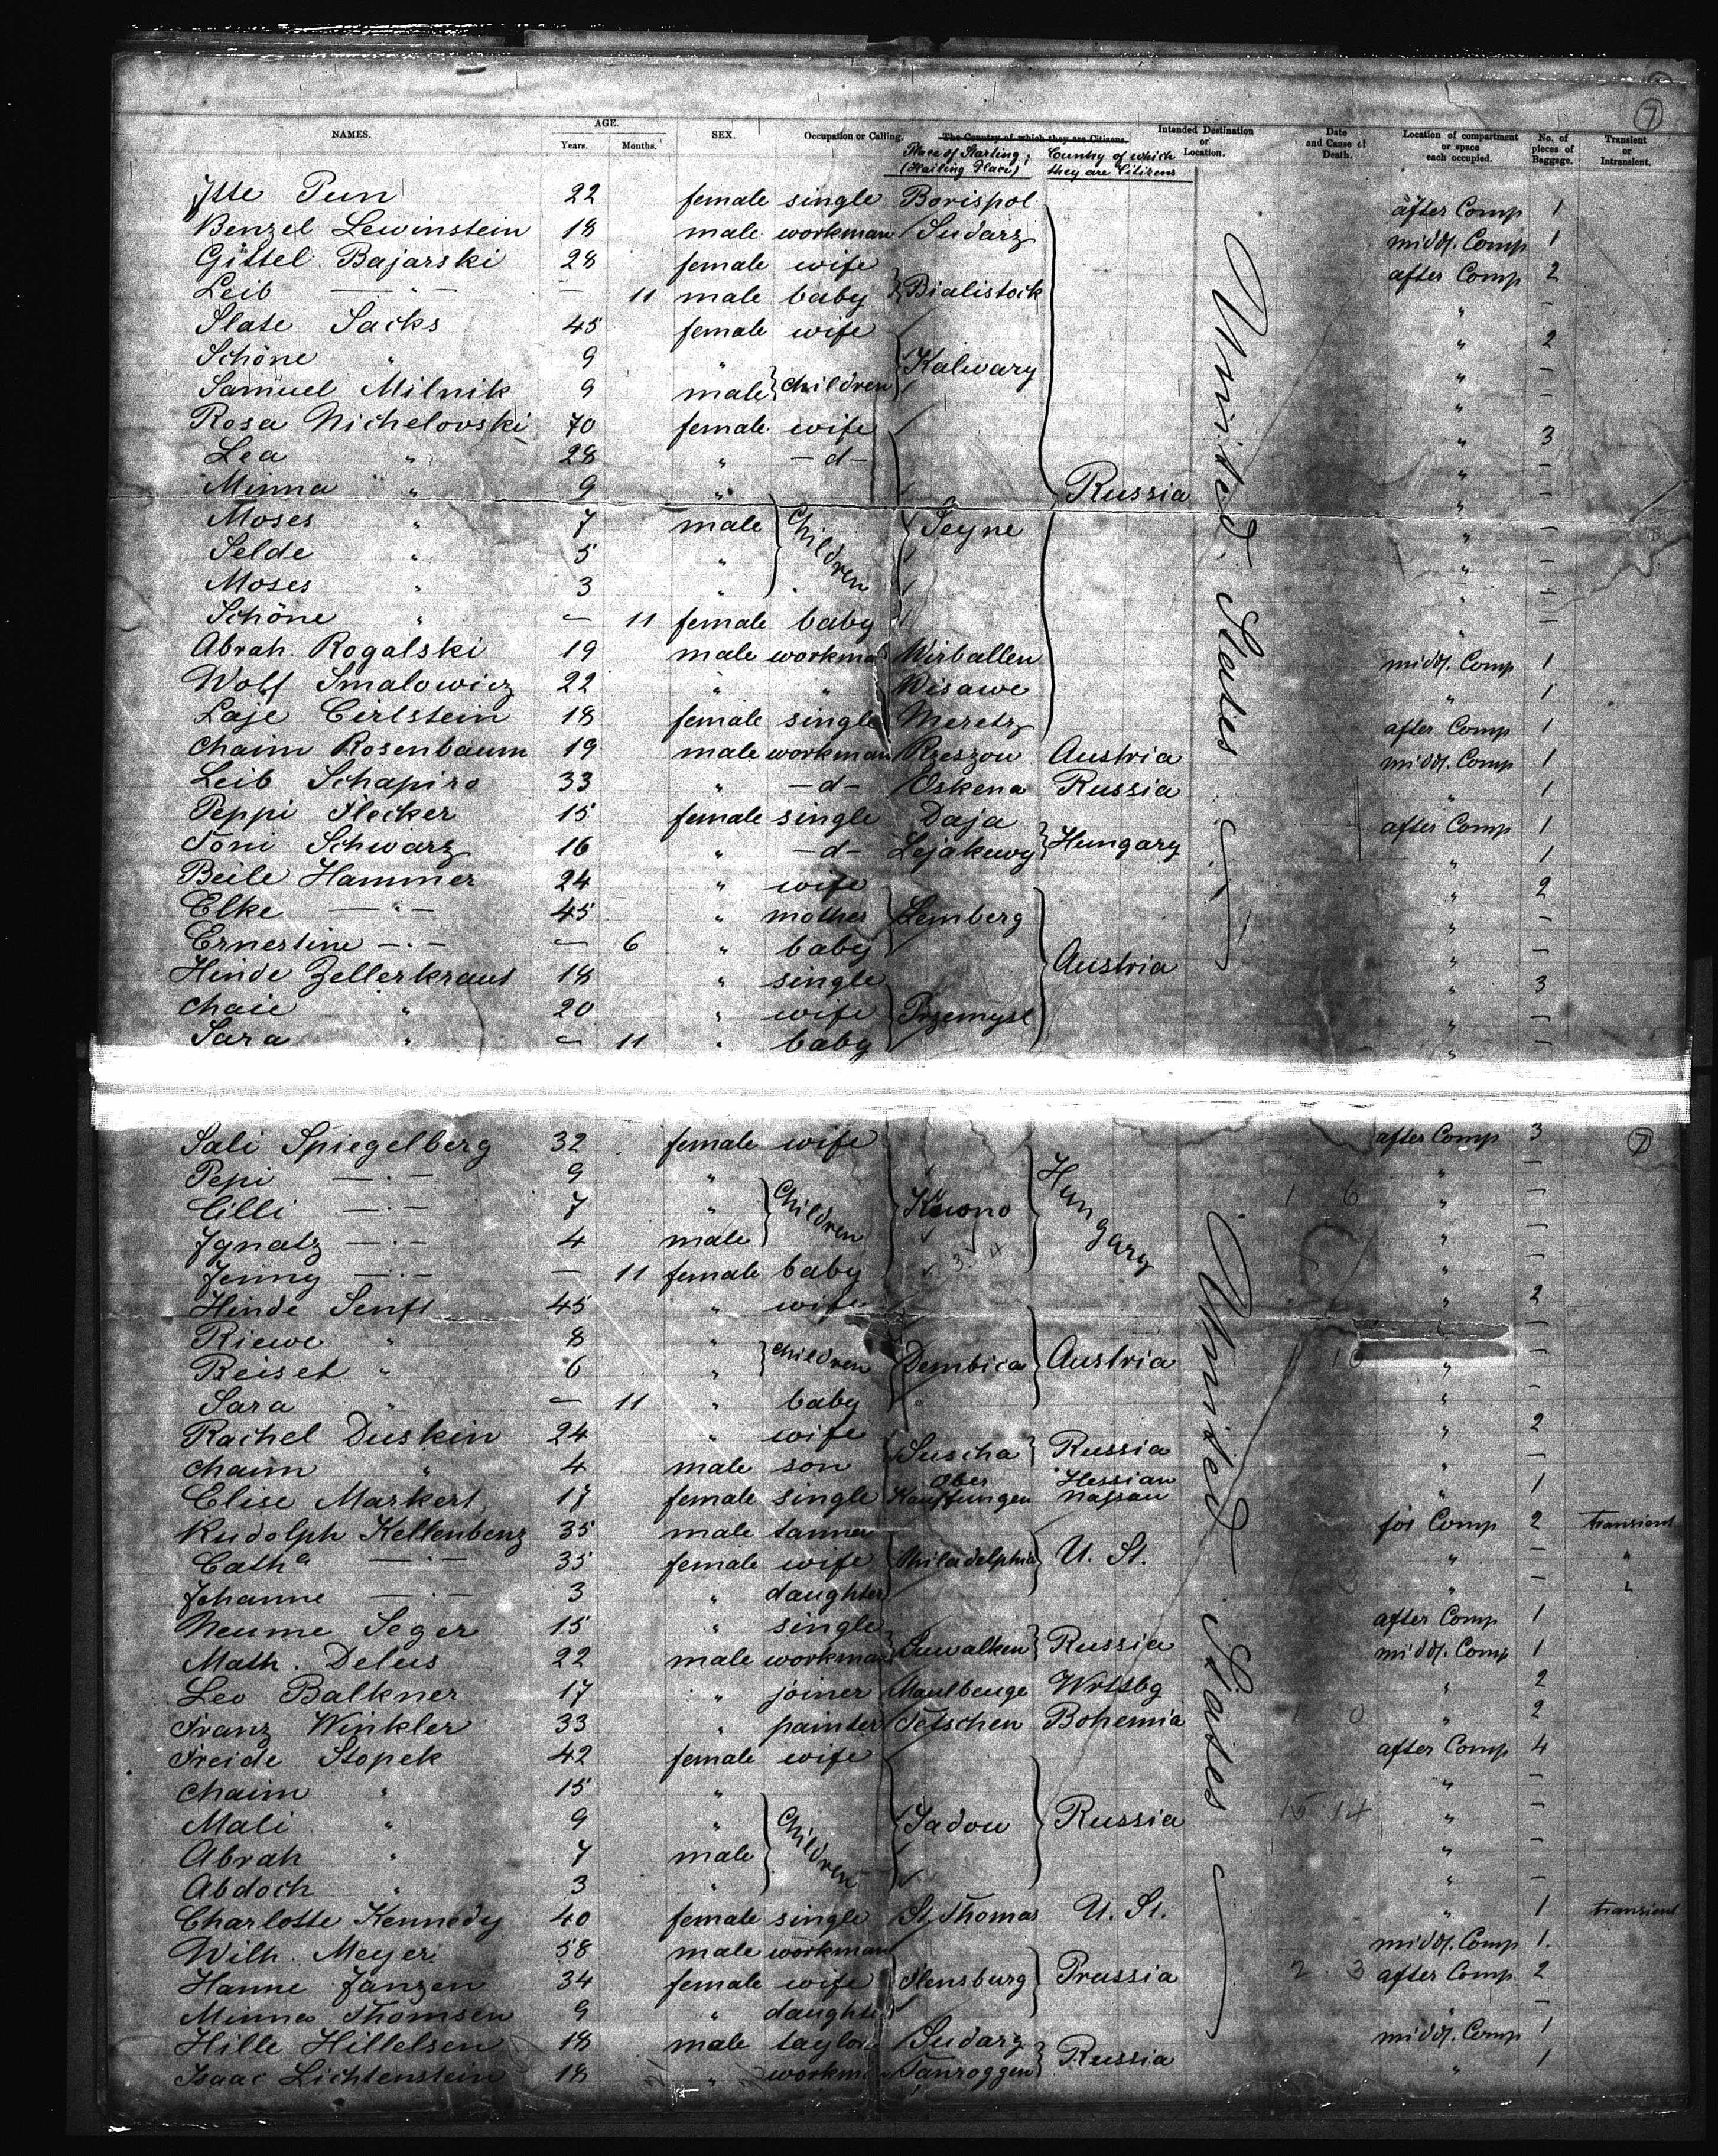 7
NAMES. AGE. Years. Months. SEX. Occupation or Calling. The Country of which they are Citizens. Intended Destination or Location. Date and Cause of Death. Location of compartment or space each occupied. No. of pieces of Baggage. Transient or Intransient.
Place of Starting; (Hailing Place) Country of which they are Citizens
Itte Pun 22 female single Borispol after Comp 1
Benzel Lewinstein 18 male workman Sudarz midd. Comp 1
Gittel Bajarski 28 female wife after Comp 2
Leib —"— — 11 male baby Bialistock " —
Slate Sacks 45 female wife " 2
Schöne " 9 " Kalwary " —
Samuel Milnik 9 male children " —
Rosa Michelovski 70 female wife " 3
Lea " 28 " —d— " —
Minna " 9 " Russia " —
Moses " 7 male Children Seyne " —
Selde " 5 " " —
Moses " 3 " " —
Schöne " — 11 female baby " —
Abrah. Rogalski 19 male workma Wirballen midd. Comp 1
Wolf Smalowicz 22 " " Wisawe " 1
Laje Cirlstein 18 female single Meretz after Comp 1
Chaim Rosenbaum 19 male workman Rzeszow Austria midd. Comp 1
Leib Schapiro 33 " —d— Oskena Russia " 1
Peppi Flecker 15 female single Daja after Comp 1
Toni Schwarz 16 " —d— Lejakuwy Hungary " 1
Beile Hammer 24 " wife " 2
Elke —"— 45 " mother Lemberg " —
Ernestine —"— — 6 " baby " —
Hinde Zellerkraut 18 " single Austria " 3
Chaie " 20 " wife Przemysl " —
Sara " — 11 " baby " —
United States
Sali Spiegelberg 32 female wife after Comp 3 7
Pepi —"— 9 " " —
Cilli —"— 7 " Children Kuono Hungary " —
Ignatz —"— 4 male " —
Jenny —"— — 11 female baby " —
Hinde Senft 45 " wife " 2
Riewe " 8 " " —
Reisel " 6 " children Dembica Austria " —
Sara " — 11 " baby " —
Rachel Duskin 24 " wife " 2
Chaim " 4 male son Suscha Russia " —
Elise Markert 17 female single Ober Kauffungen Hessian Nassau " 1
Rudolph Kellenbenz 35 male tanner for Comp 2 transient
Catha —"— 35 female wife Philadelphia U. St. " — "
Johanne —"— 3 " daughter " — "
Neume Seger 15 " single after Comp 1
Math. Deleis 22 male workman Suwalken Russia midd. Comp 1
Leo Balkner 17 " joiner Maulbeuge Wrttbg " 2
Franz Winkler 33 " painter Tetschen Bohemia " 2
Freide Stopek 42 female wife after Comp 4
Chaim " 15 " " —
Mali " 9 " Children Sadow Russia " —
Abrah " 7 male " —
Abdoch " 3 " " —
Charlotte Kennedy 40 female single St. Thomas U. St. " 1 transient
Wilh. Meyer 58 male workman midd. Comp 1.
Hanne Janzen 34 female wife Flensburg Prussia after Comp 2
Minna Thomsen 9 " daughte " —
Hille Hillelsen 18 male taylor Sudarz midd. Comp 1
Isaac Lichtenstein 18 " workm Tanroggen Russia " 1
United States